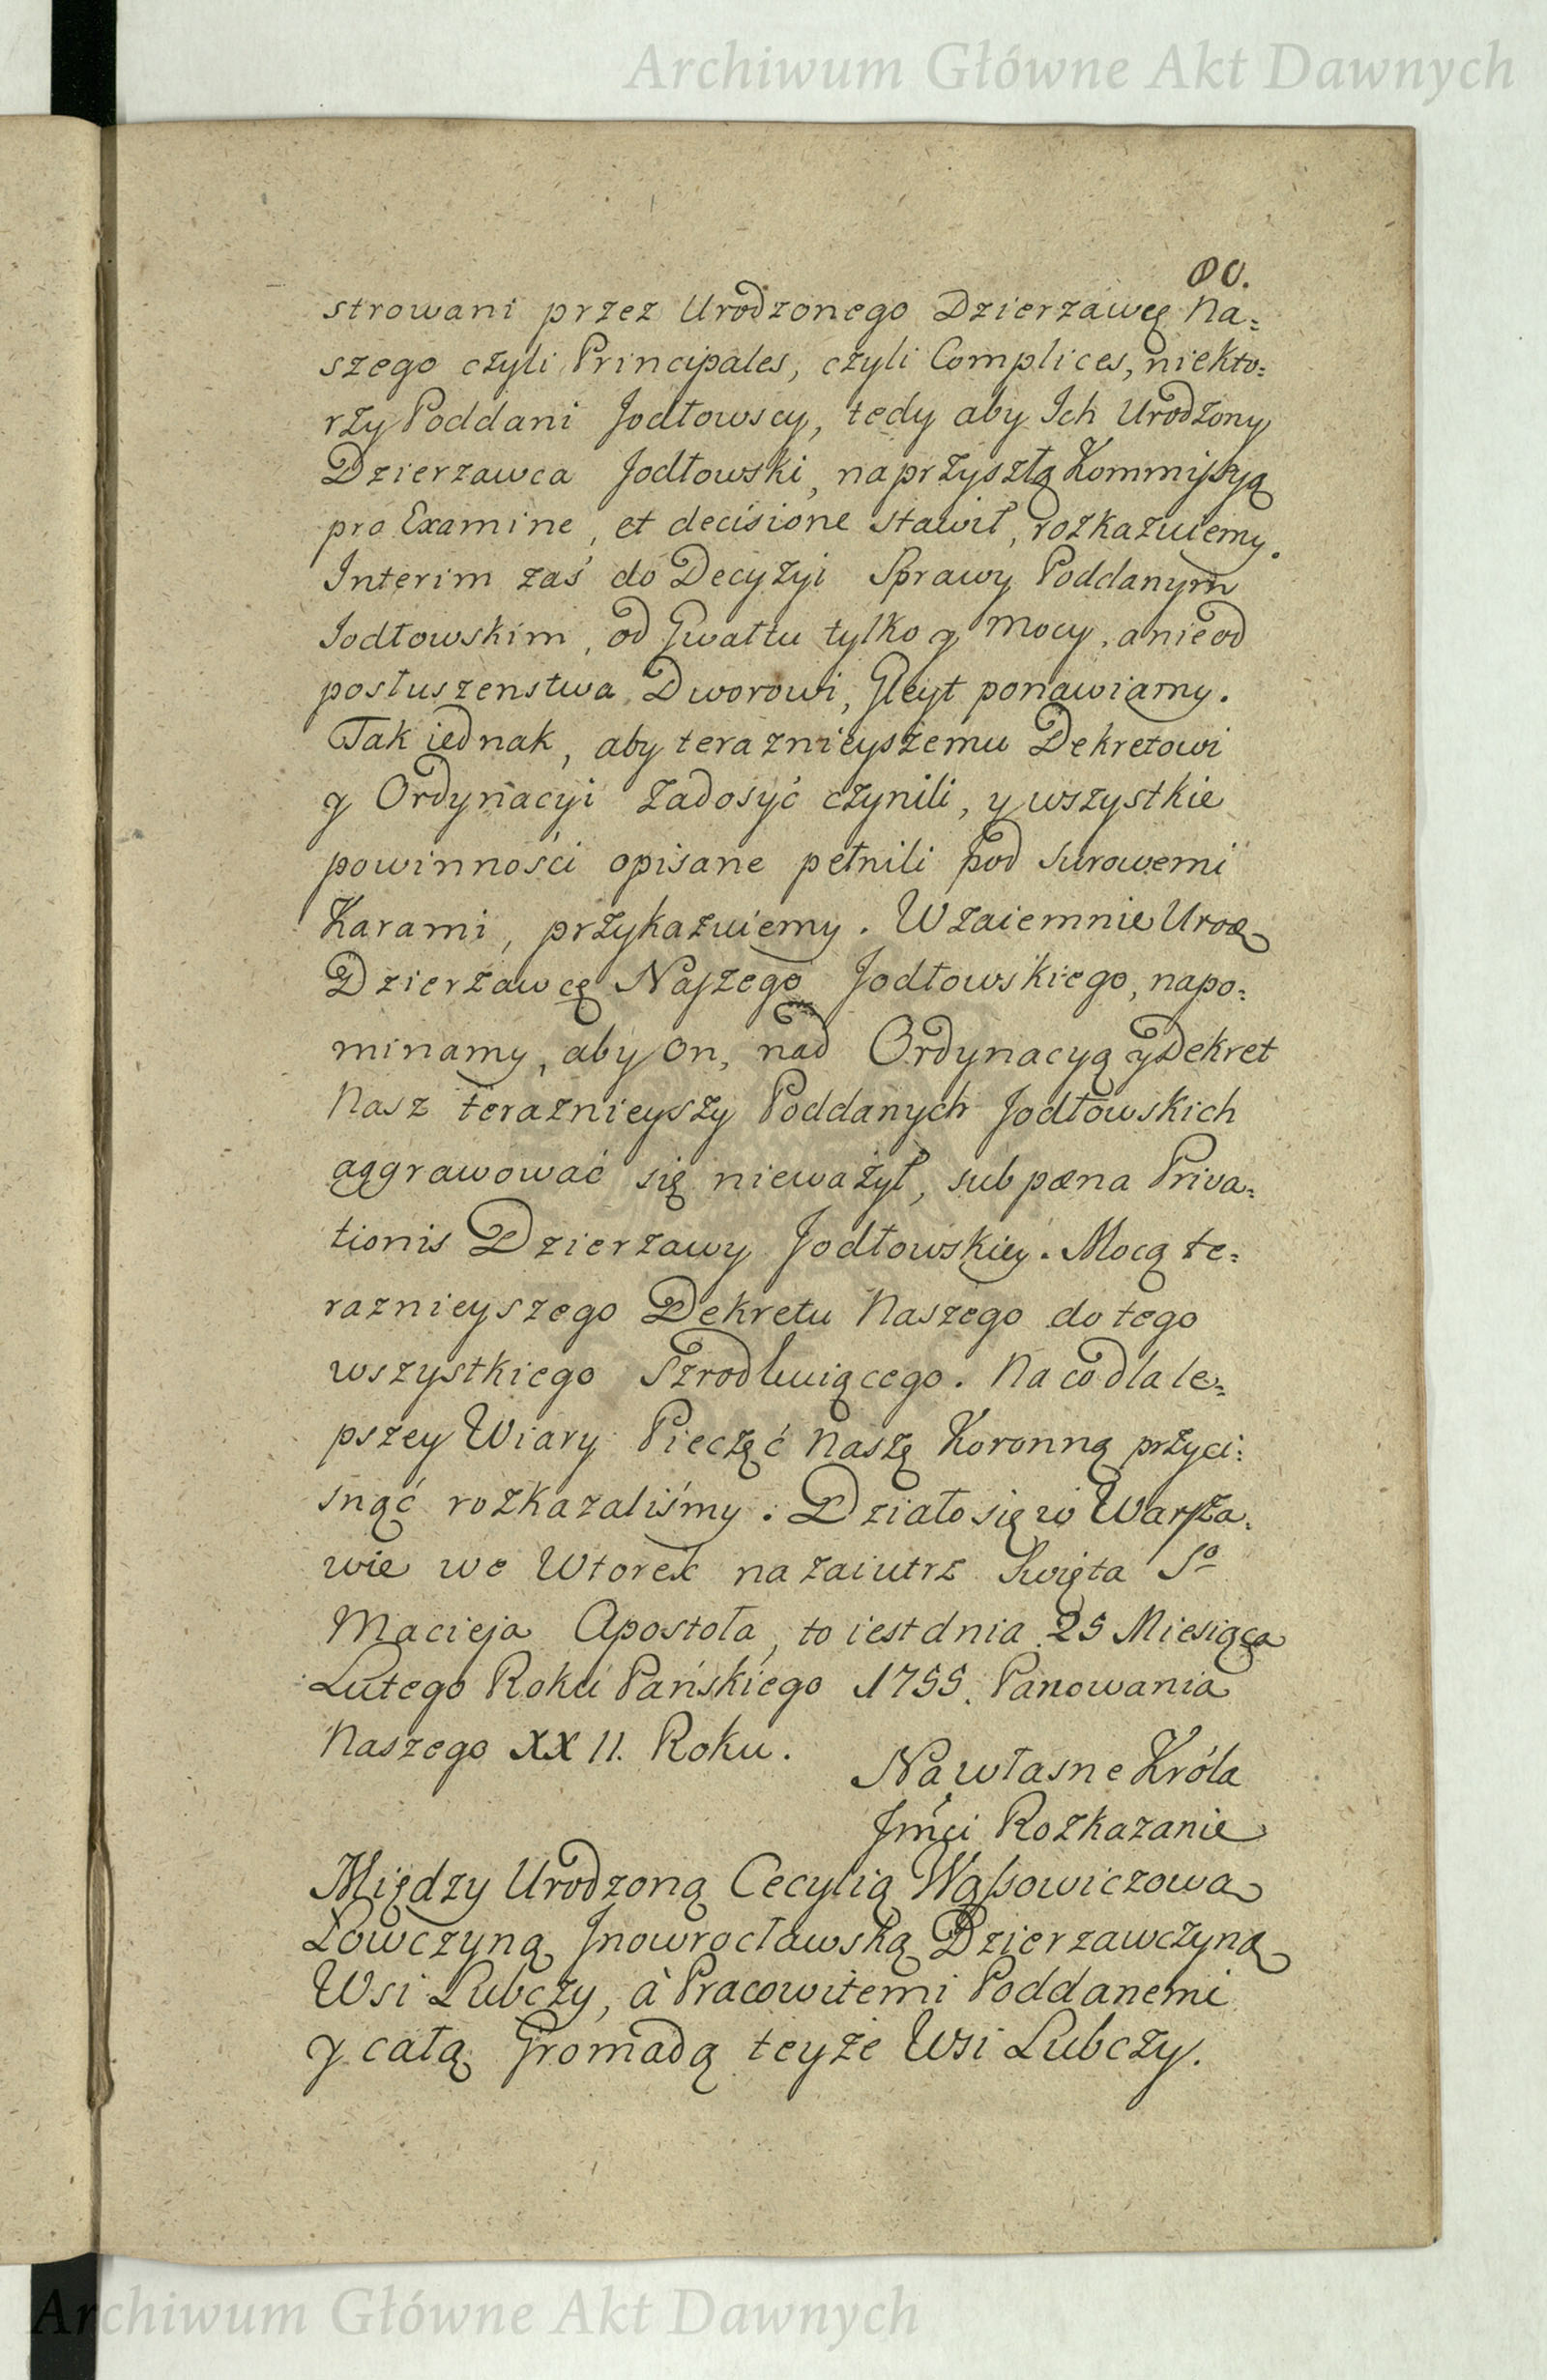 Archiwum Główne Akt Dawnych
strowani przez Urodzonego Dzierzawcę Na=
szego czyli Principales, czyli Complices, niekto=
rzy Poddani Jodłowscy, tedy aby Ich Urodzony
Dzierzawca Jodłowski, na przyszłą Kommissyą
pro Examine, et decisione stawił, rozkazuiemy.
Interim zaś do Decyzyi Sprawy Poddanym
Jodłowskim, od Gwałtu tylko y Mocy, a nie od
posłuszenstwa Dworowi, Gleyt ponawiamy.
Tak iednak, aby teraznieyszemu Dekretowi
y Ordynacyi zadosyć czynili, y wszystkie
powinności opisane pełnili pod surowemi
Karami, przykazuiemy. Wzaiemnie Urod
Dzierzawcę Naszego Jodłowskiego, napo=
minamy, aby on, nad Ordynacyą y Dekret
Nasz teraznieyszy Poddanych Jodłowskich
aggrawować się nieważył, sub pæna Priva=
tionis Dzierzawy Jodłowskiey. Mocą te=
raznieyszego Dekretu Naszego do tego
wszystkiego Szrodluiącego. Na co dla le=
pszey Wiary Pieczęć Naszę Koronną przyci=
snąć rozkazaliśmy. Działo się w Warsza=
wie we Wtorek nazaiutrz Swięta Sº
Macieja Apostoła, to iest dnia 25 Miesiąca
Lutego Roku Pańskiego 1755. Panowania
Naszego XXII. Roku.
Na własne Króla
Jmći Rozkazanie
Między Urodzoną Cecylią Wąsowiczowa
Łowczyną Jnowrocławską Dzierzawczyną
Wsi Lubczy, à Pracowitemi Poddanemi
y całą Gromadą teyże Wsi Lubczy.
Archiwum Główne Akt Dawnych